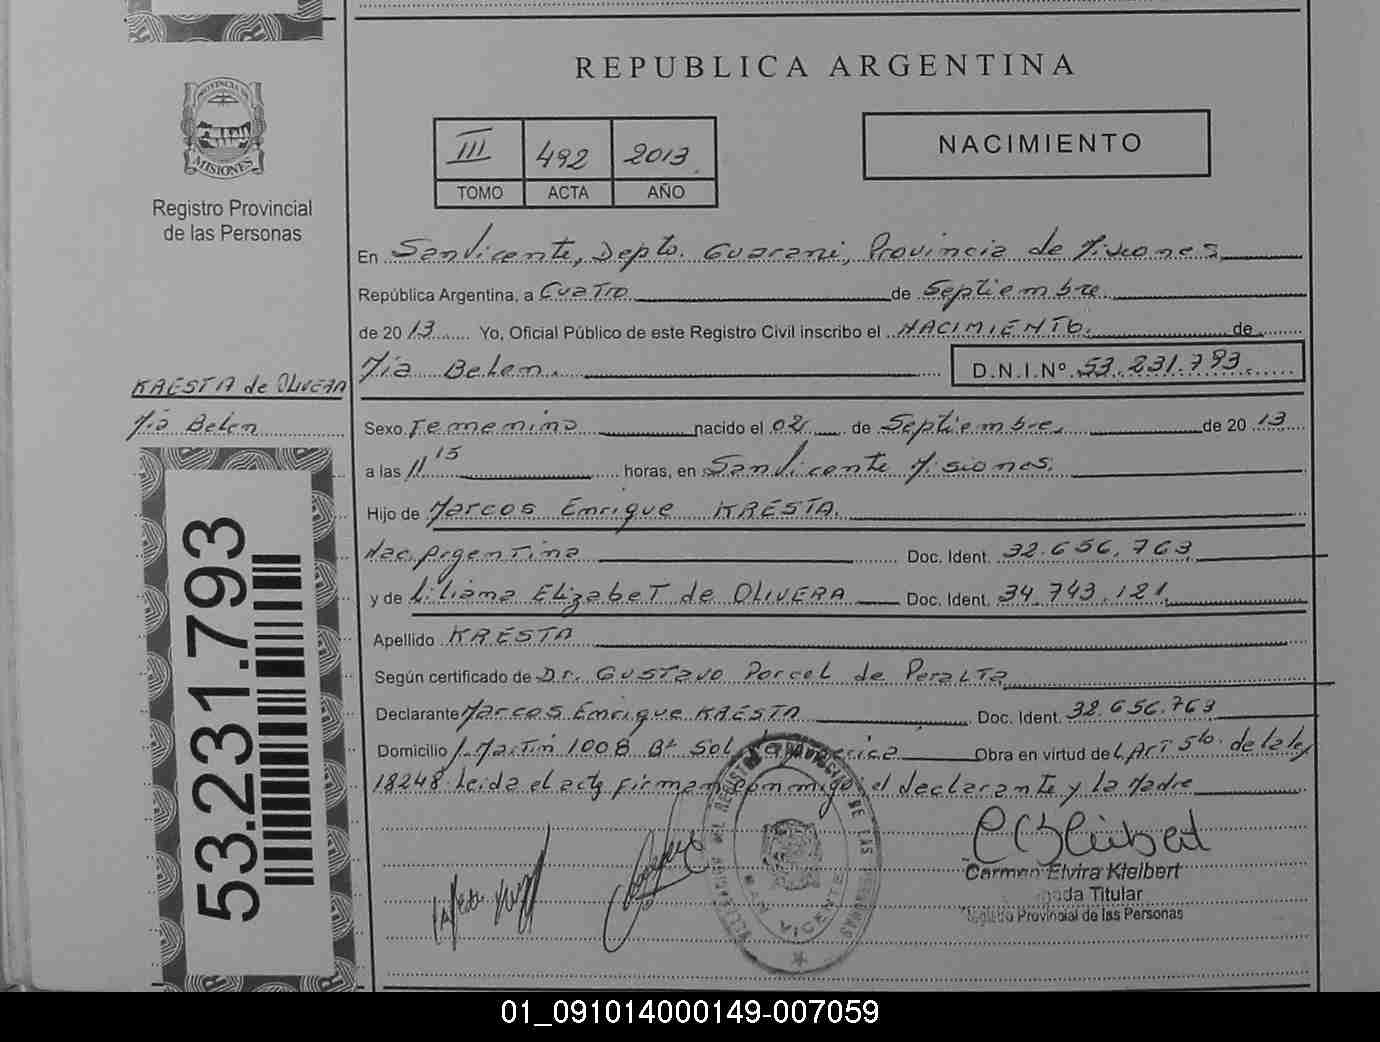 REPUBLICA ARGENTINA
PROVINCIA DE
MISIONES
Registro Provincial
de las Personas
III 492 2013
TOMO ACTA AÑO
NACIMIENTO
En San Vicente, Depto. Guarani, Provincia de Misiones
República Argentina, a Cuatro de Septiembre
de 2013 Yo, Oficial Público de este Registro Civil inscribo el NACIMIENTO. de
Mía Belen. D.N.I.Nº 53.231.793
KRESTA de OLIVERA
Mía Belen
Sexo Femenino nacido el 02 de Septiembre de 2013
a las 11 15 horas, en San Vicente Misiones.
Hijo de Marcos Enrique KRESTA.
Nac. Argentina Doc. Ident. 32.656.763
y de Liliana Elizabet de OLIVERA Doc. Ident. 34.743.121
Apellido KRESTA
Según certificado de Dr. GUSTAVO Porcel de PERALTA
Declarante Marcos Enrique KRESTA Doc. Ident. 32.656.763
Domicilio J. Martin 1008 Bº Sol de America Obra en virtud del ART 5to. de la ley
18248 Leida el acta firman conmigo el declarante y la Madre
53.231.793
SAN VICENTE
Carmen Elvira Kleibert
Titular
Registro Provincial de las Personas
01_091014000149-007059